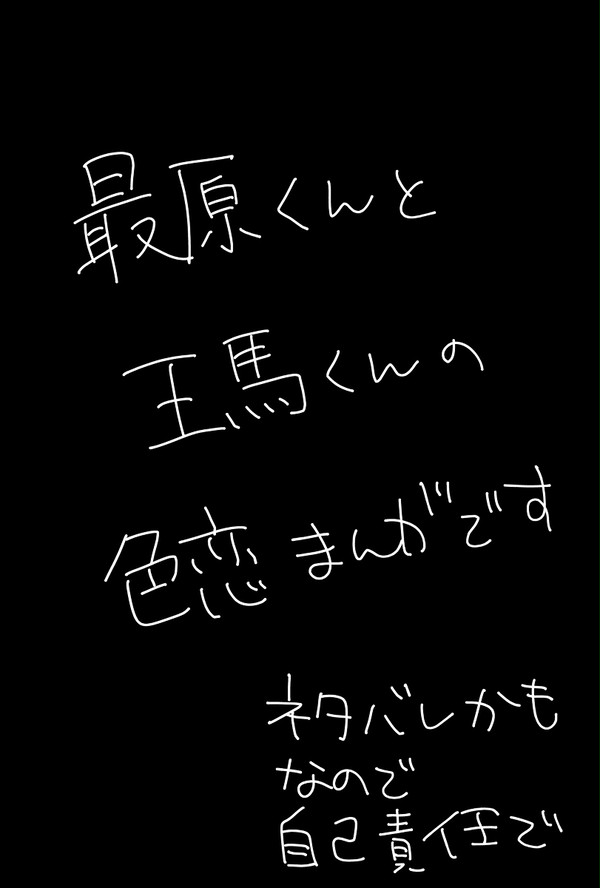 最原くんと
王馬くんの
色恋まんがです
ネタバレかも
なので
自己責任で